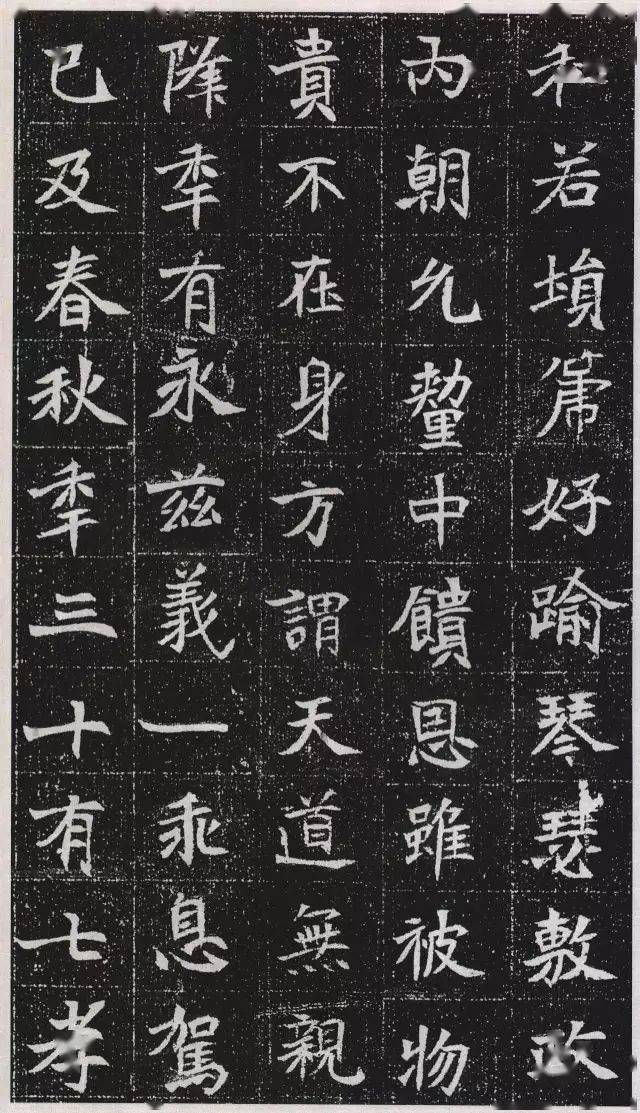 和若塤箎好踰琴瑟敷政
內朝允釐中饋恩雖被物
貴不在身方謂天道無親
降秊有永茲義一乖息駕
已及春秋秊三十有七孝